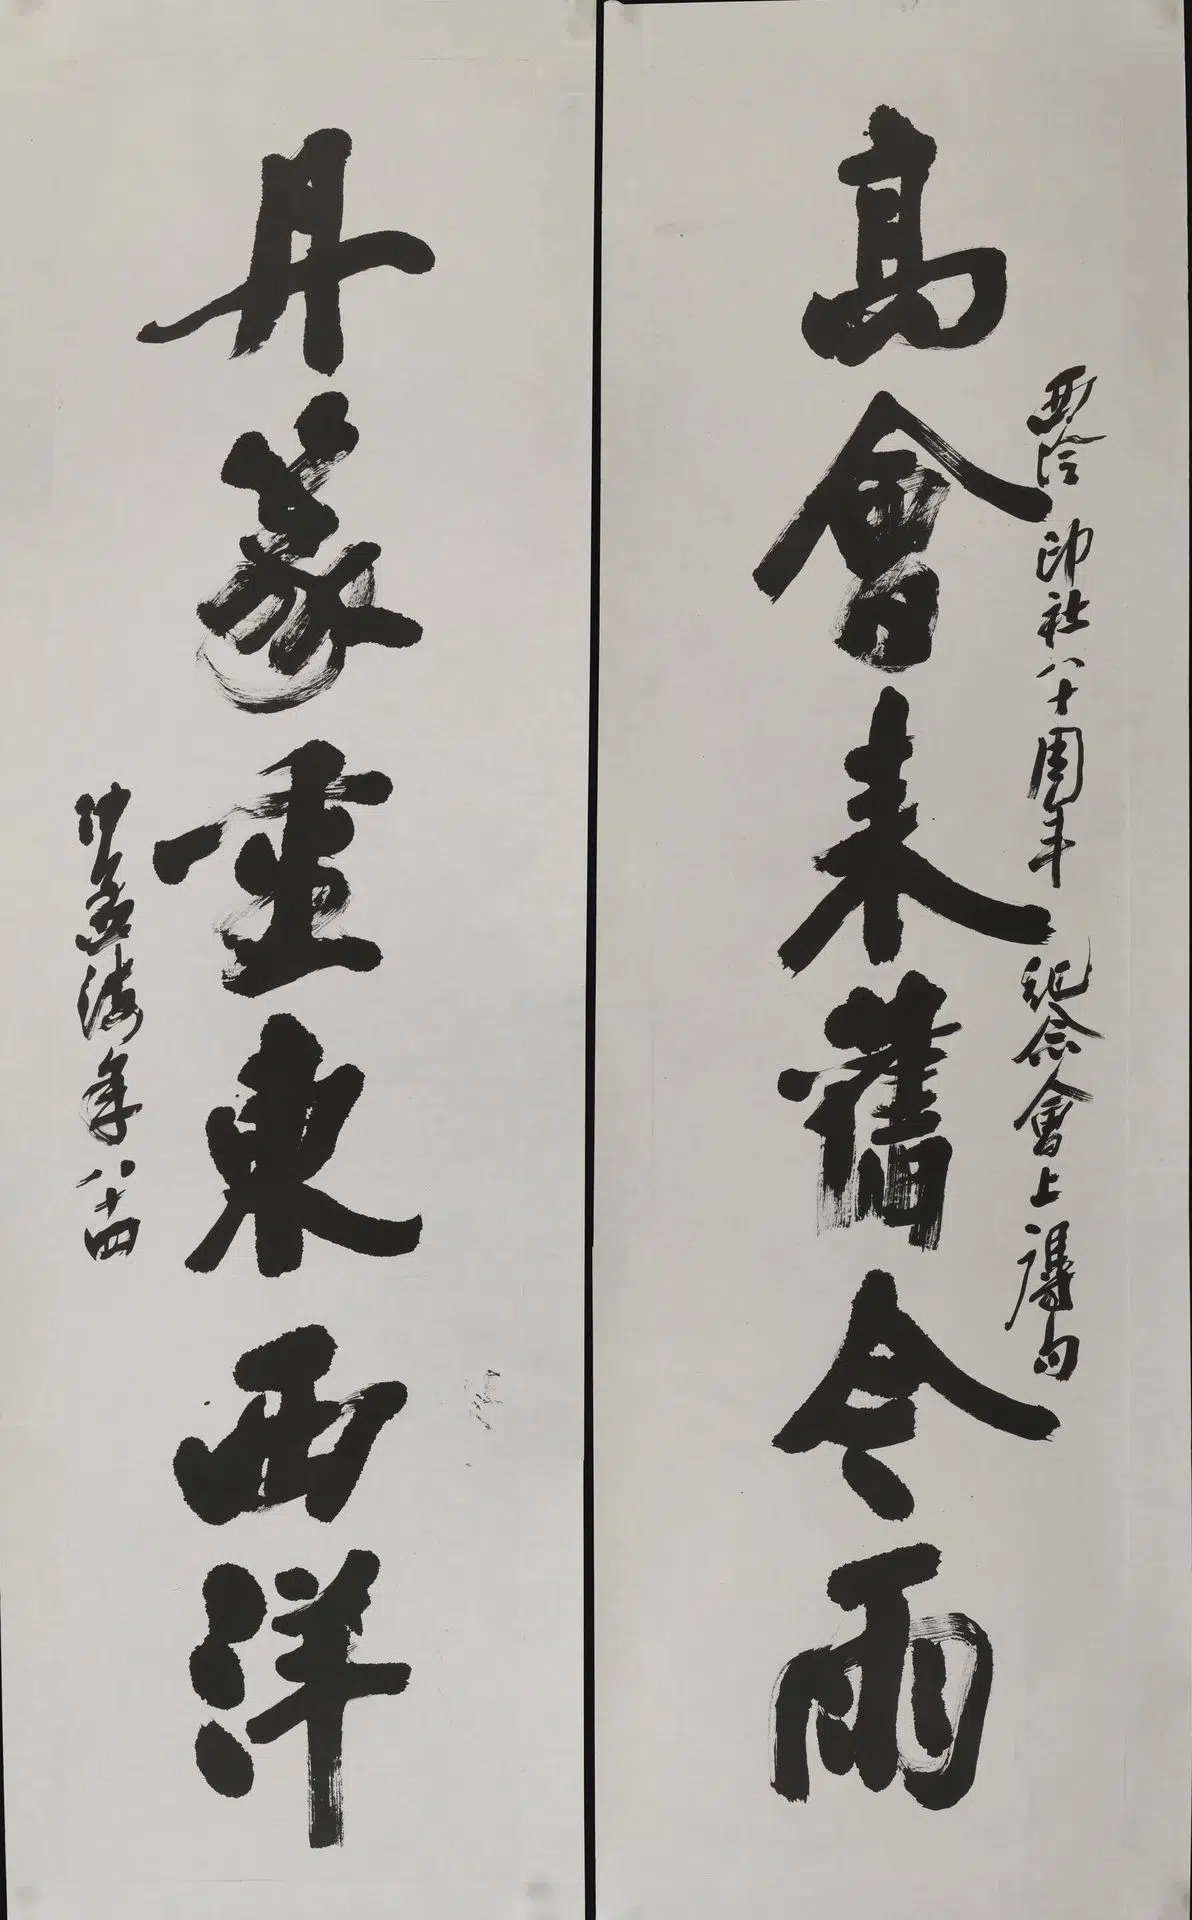 高會来舊今雨
西泠印社八十周年紀念會上得句
丹篆重東西洋
沙孟海年八十四